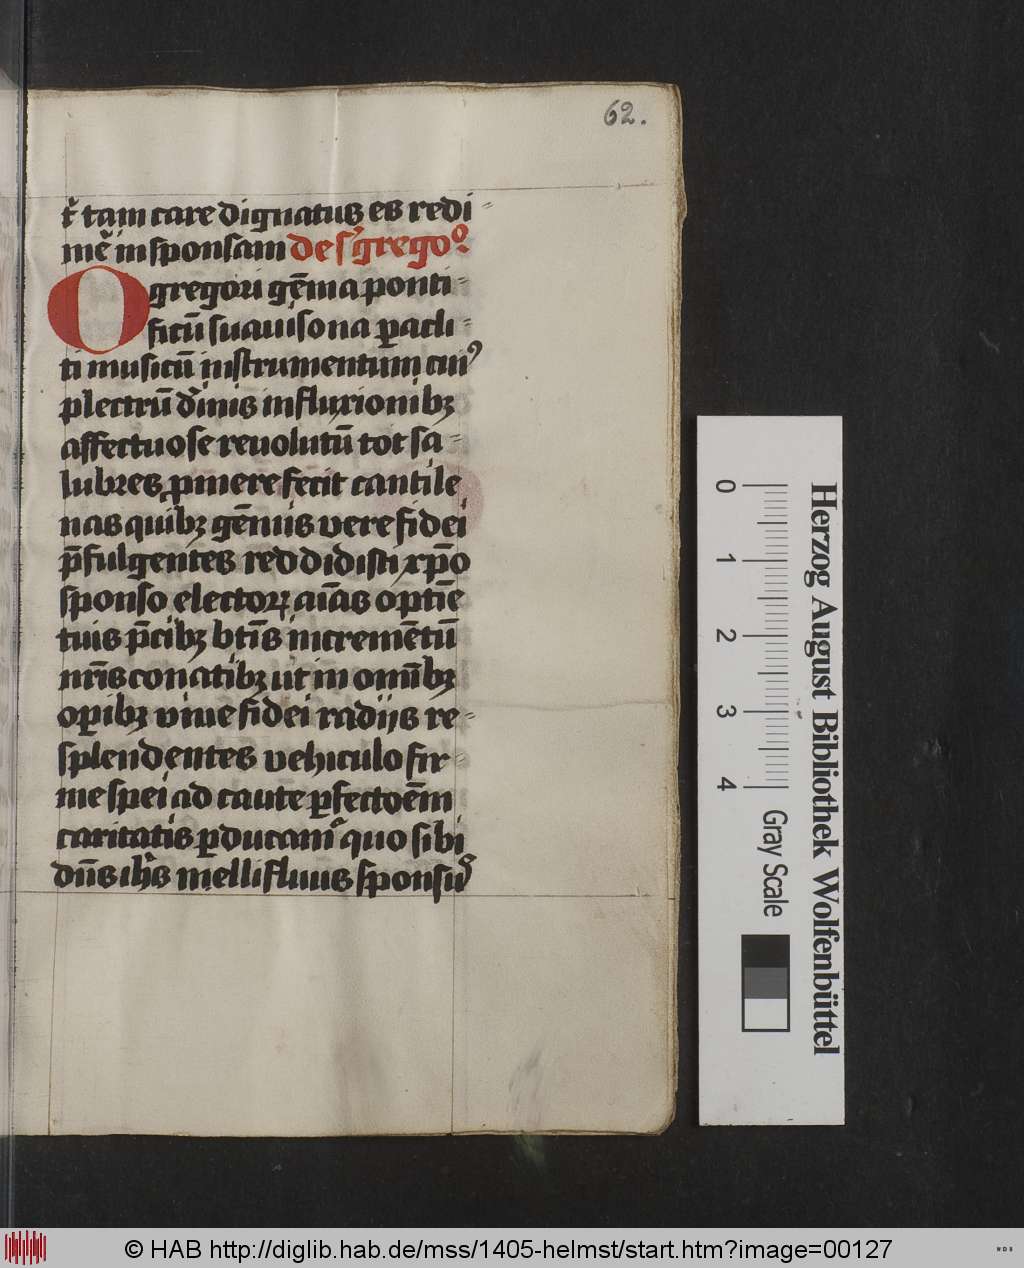 62.
t᷑ tam care dignatus es redi-
me᷑ in sponsam de s᷑ gregoº.
O gregori gēma ponti-
ficū suauisona ꝑacli-
ti musicū instrumentum cuiꝰ
plectrū d᷑inis influxionibꝫ
affectuose reuolutū tot sa-
lubres ꝓmere fecit cantile
nas quibꝫ gēniis vere fidei
p̄fulgentes reddidisti xp̄o
sponso electoꝝ aīas optīe
tuis p̄cibꝫ btīs incremētū
nr̄is conatibꝫ ut in omībꝫ
oꝑibꝫ viue fidei radijs re-
splendentes vehiculo fir-
me spei ad caute ꝑfectoēm
caritatis ꝑducam᷑ quo sibi
dn̄s ih̄s mellifluus sponsus
Herzog August Bibliothek Wolfenbüttel
0 1 2 3 4
Gray Scale
© HAB http://diglib.hab.de/mss/1405-helmst/start.htm?image=00127